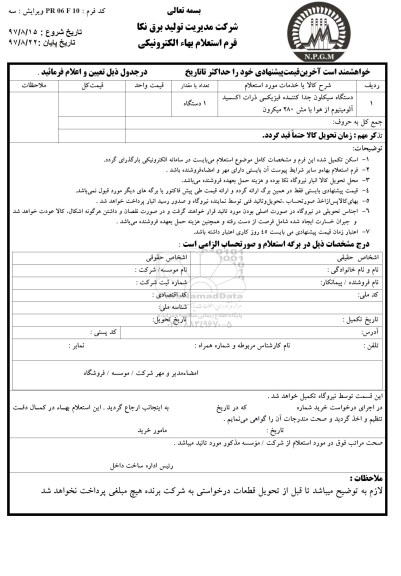 بسمه تعالی
کد فرم : PR 06 F 10 ویرایش : سه
شرکت مدیریت تولید برق نکا
تاریخ شروع : ۹۷/۸/۱۵
فرم استعلام بهاء الکترونیکی
تاریخ پایان : ۹۷/۸/۲۲
N.P.G.M
خواهشمند است آخرین قیمت پیشنهادی خود را حداکثر تا تاریخ درجدول ذیل تعیین و اعلام فرمائید .
ردیف شرح کالا یا خدمات مورد استعلام تعداد یا مقدار قیمت واحد قیمت کل ملاحظات
۱ دستگاه سیکلون جدا کننده فیزیکسی ذرات اکسید آلومینیوم از هوا با مش ۲۸۰ میکرون ۱ دستگاه
جمع کل به حروف:
تذکر مهم : زمان تحویل کالا حتماً قید گردد.
۱- اسکن تکمیل شده این فرم و مشخصات کامل موضوع استعلام می‌بایست در سامانه الکترونیکی بارگذاری گردد.
۲- فرم استعلام بهاءو سایر شرایط پیوست آن بایستی دارای مهر و امضاءفروشنده باشد .
۳- محل تحویل کالا انبار نیروگاه نکا بوده و هزینه حمل بعهده فروشنده می‌باشد.
۴- قیمت پیشنهادی بایستی فقط در همین برگه ارائه گردد و ارائه قیمت طی پیش فاکتور یا برگه های دیگر مورد قبول نمی‌باشد.
۵- بهای‌کالاپس‌ازاخذ صورتحساب ،تحویل‌وتائید فنی توسط نماینده نیروگاه و صدور رسید انبار پرداخت خواهد شد .
۶- اجناس تحویلی در نیروگاه در صورت اصلی بودن مورد تائید قرار خواهند گرفت و در صورت نقصان و داشتن هرگونه اشکال، کالا عودت خواهد شد
و جبران خسارت ایجاد شده شامل فرصت از دست رفته و همچنین هزینه حمل بعهده فروشنده می‌باشد .
۷- اعتبار زمان قیمت پیشنهادی می بایست ۴۵ روز کاری اعتبار داشته باشد.
درج مشخصات ذیل در برگه استعلام و صورتحساب الزامی است :
اشخاص حقیقی اشخاص حقوقی
نام و نام خانوادگی : نام موسسه/ شرکت :
نام فروشنده / پیمانکار: شماره ثبت شرکت :
کد ملی: کد اقتصادی :
شناسه ملی:
تاریخ تکمیل : تاریخ تحویل:
آدرس: کد پستی :
تلفن : نام کارشناس مربوطه و شماره همراه : نمابر :
امضاءمدیر و مهر شرکت / موسسه / فروشگاه
این قسمت توسط نیروگاه تکمیل خواهد شد .
در اجرای درخواست خرید شماره که در تاریخ به اینجانب ارجاع گردید . این استعلام بهاء در کمال دقت
تنظیم و اخذ گردید و صحت مندرجات آن را گواهی می‌نمایم .
تاریخ : مامور خرید
صحت مراتب فوق در مورد استعلام از شرکت / مؤسسه مذکور مورد تائید میباشد .
رئیس اداره ساخت داخل
ملاحظات :
لازم به توضیح میباشد تا قبل از تحویل قطعات درخواستی به شرکت برنده هیچ مبلغی پرداخت نخواهد شد